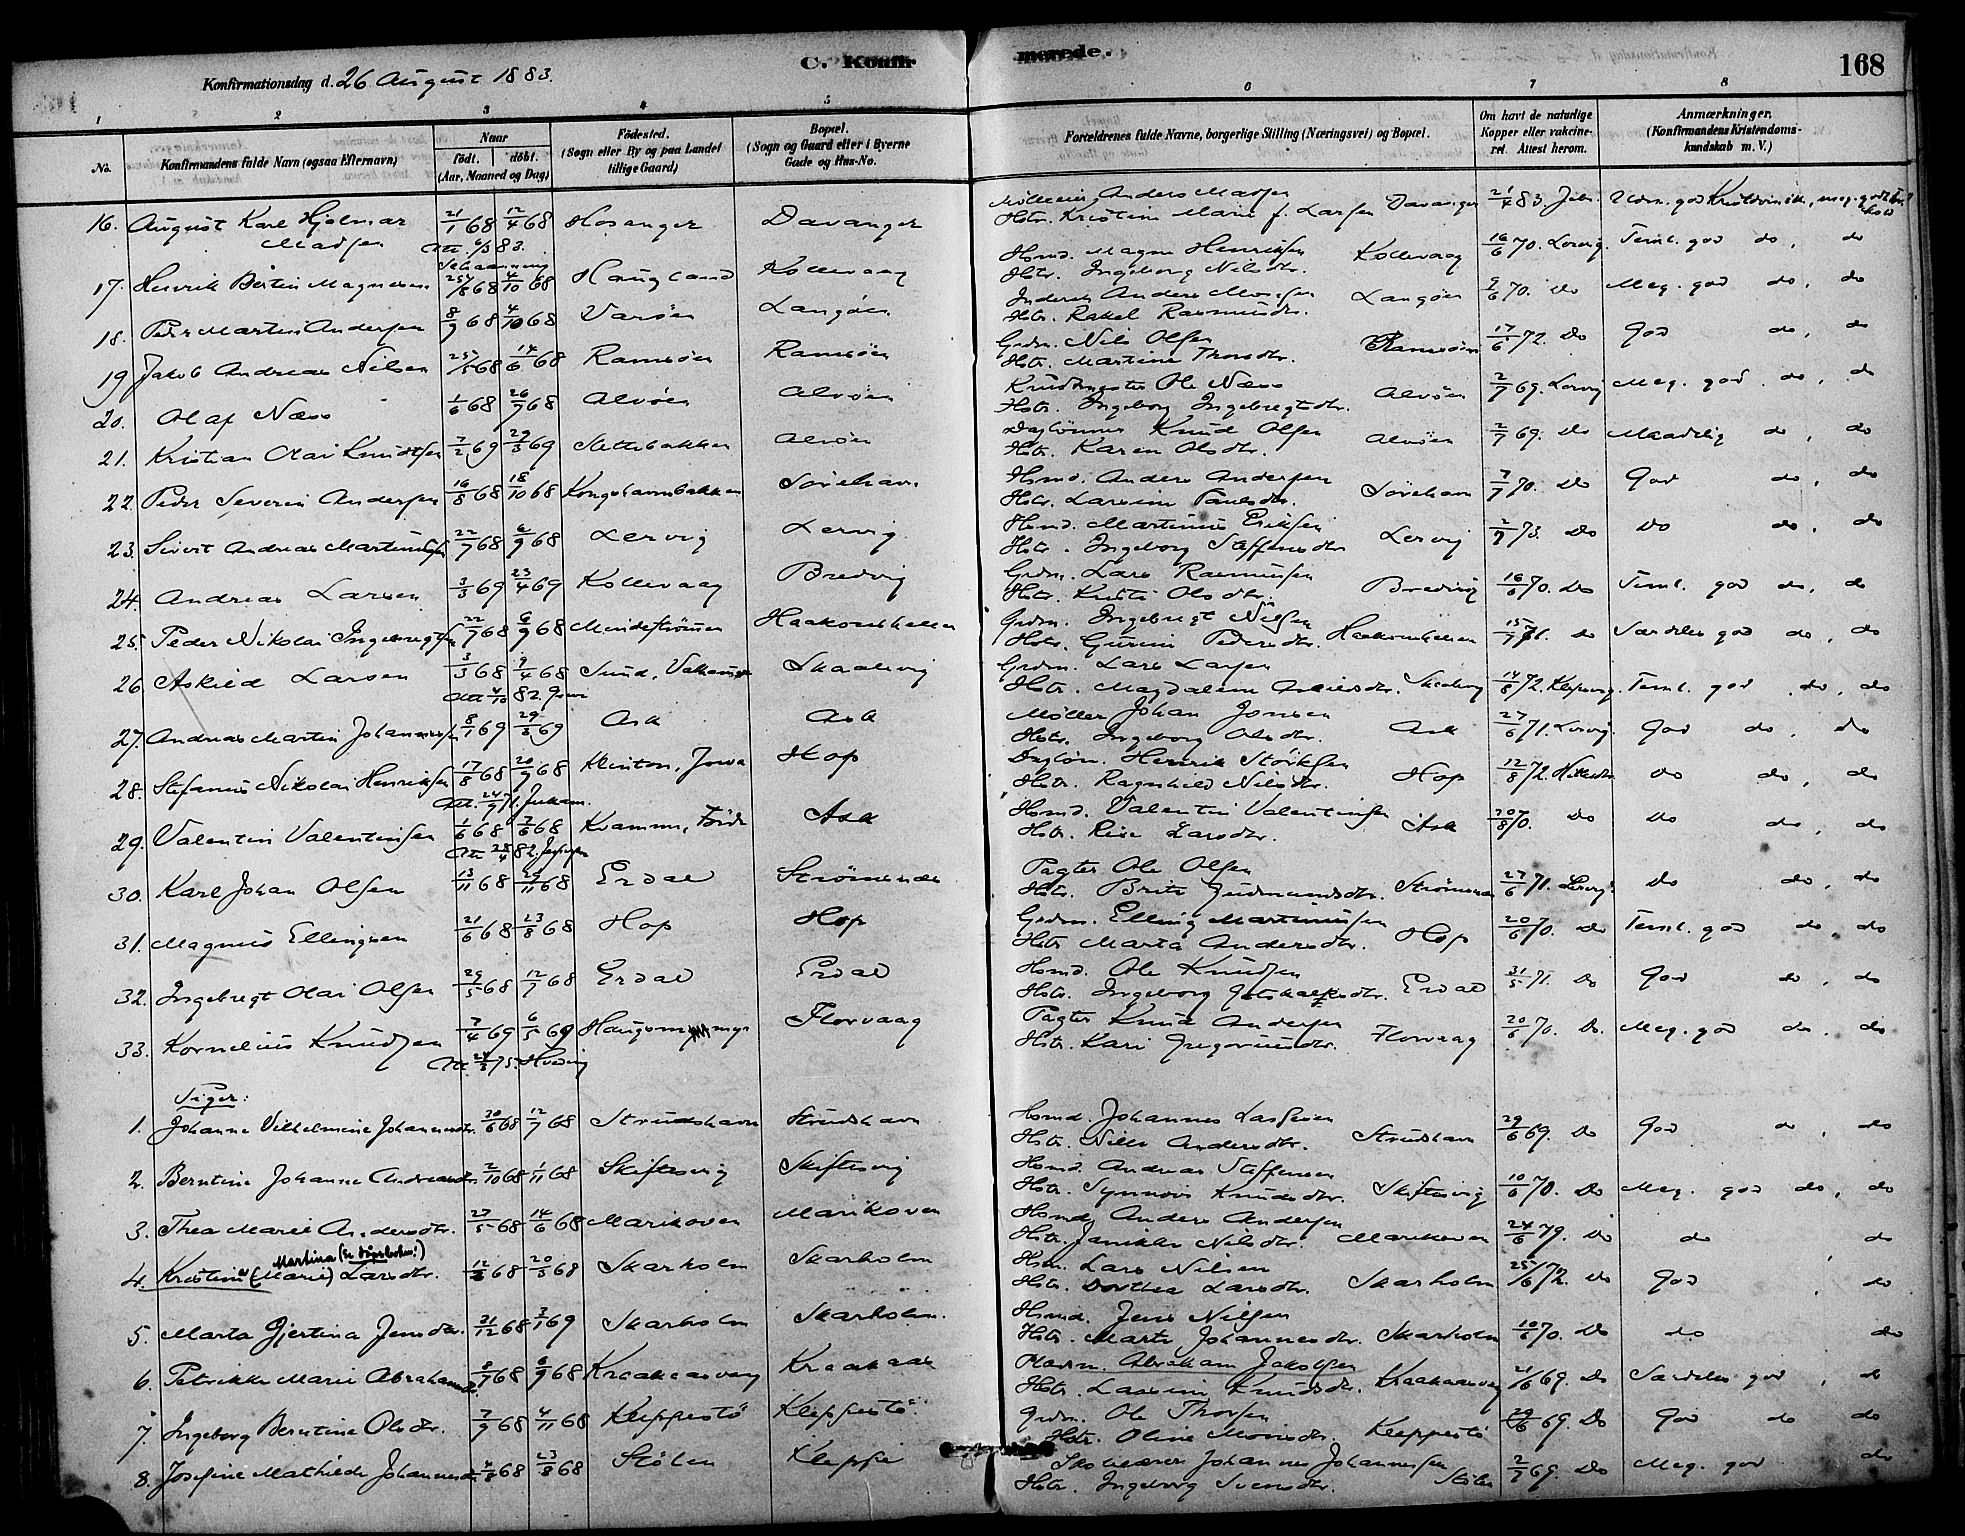 C. Konfirmerede.
168
Konfirmationsdag d. 26 August 1883.
1 2 3 4 5 6 7 8
No. Konfirmandens fulde Navn (ogsaa Efternavn) Naar født. døbt. (Aar, Maaned og Dag) Fødested. (Sogn eller By og paa Landet tillige Gaard) Bopæl. (Sogn og Gaard eller i Byerne Gade og Hus-No.) Forældrenes fulde Navne, borgerlige Stilling (Næringsvei) og Bopæl. Om havt de naturlige Kopper eller vakcineret. Attest herom. Anmærkninger. (Konfirmandens Kristendomskundskab m. V.)
16. August Karl Hjalmar Madsen 21/1 68 12/4 68 Hosanger Davanger Anders Madsen Davanger 21/4 83.
Hstr. Kristine Marie f. Larsen
Att. 6/3 83.
17. Henrik Bertin Magnesen 25/8 68 4/10 68 Haugland Kollevaag Hsmd. Magne Henriksen Kollevaag 16/6 70. Lervig Teml. god do, do
Hstr. Ingeborg Nilsdtr.
18. Peder Martin Andersen 8/9 68 4/10 68 Varøen Langøen Inderst Anders Monsen Langøen 9/6 70. Do Meg. god do, do
Hstr. Rakel Rasmusdtr.
19 Jakob Andreas Nilsen 25/5 68 14/6 68 Ramsøen Ramsøen Grdm. Nils Olsen Ramsøen 17/6 72. Do God do, do
Hstr. Martine Thorsdtr.
20. Olaf Næss 1/6 68 26/7 68 Alvøen Alvøen Krudtmester Ole Næss Alvøen 2/7 69. Lervig Meg. god do, do
Hstr. Ingeborg Ingebregtsdtr.
21. Kristian Olai Knudtsen 7/2 69 29/3 69 Alvøen Daglønner Knud Olsen Alvøen 2/7 69. Do Maadelig do, do
Hstr. Karen Olsdtr.
22. Peder Severin Andersen 16/8 68 18/10 68 Kongshavnbakken Sørehavn Hsmd. Anders Andersen Sørehavn 7/7 70. Do God do, do
Hstr. Larsine Paulsdtr.
23. Sivert Andreas Martinusen 22/7 68 6/9 68 Lervig Lervig Hsmd. Martinus Eriksen Lervig 2/7 73. Do Do do, do
Hstr. Ingeborg Steffensdtr
24. Andreas Larsen 3/3 69 23/4 69 Kollevaag Bredvig Grdm. Lars Rasmusen Bredvig 16/6 70. Do Teml. god do, do
Hstr. Kristi Olsdtr.
25. Peder Nikolai Ingebregtsen 22/7 68 6/9 68 Mindestrømen Haakonshellen Grdm. Ingebregt Nilsen Haakonshellen 15/7 71. Do Særdeles god do, do
Hstr. Gurine Pedersdtr.
26 Askild Larsen 3/3 68 9/4 68 Sund, Skaalevig Grdm. Lars Larsen Skaalevig 14/8 72. Teml. god do, do
Hstr. Magdalene
Att 4/10 82.
27. Andreas Martin Johannessen 8/1 69 29/3 69 Ask Ask Møller Johan Jonsen Ask 27/6 71. Lervig God do, do
Hstr. Ingeborg Olsdtr.
28. Stefanus Nikolai Henriksen 17/8 68 20/9 68 Klinton, Jowa Hop Dagløn. Henrik Hop 12/8 72. do do, do
Hstr. Ragnhild Nilsdtr.
Att. 24/9 71.
29. Valentin Valentinsen 1/6 68 7/6 68 Førde Ask Hsmd. Valentin Valentinsen Ask 20/8 70. Do do do, do
Hstr. Larsdtr.
Att 28/4 82.
30. Karl Johan Olsen 13/11 68 29/11 68 Erdal Strømsnæs Pagter Ole Olsen Strømsnæs 27/6 71. Lervig do do, do
Hstr. Brite Gudmundsdtr.
31. Magnus Ellingsen 21/6 68 23/8 68 Hop Hop Grdm. Elling Martinusen Hop 20/6 70. Do Teml. god do, do
Hstr Marta Andersdtr.
32. Ingebregt Olai Olsen 29/5 68 12/7 68 Erdal Erdal Hsmd. Ole Knudsen Erdal 31/5 71. Do God do, do
Hstr. Ingeborg Gotskalksdtr.
33. Kornelius Knudsen 7/4 69 6/5 69 Florvaag Pagter Knud Andersen Florvaag 20/6 70. Do. Meg. god do, do
Hstr. Kari Gregoriusdtr.
Att. 24/3 75.
Piger:
1. Johanne Vilhelmine Johannesdtr. 20/6 68 12/7 68 Strudshavn Strudshavn Hsmd. Johannes Lassesen Strudshavn 29/6 69. Do God do, do
Hstr. Nille Andersdtr.
2. Berntine Johanne Andreasdtr. 2/10 68 1/11 68 Skiftesvig Skiftesvig Hsmd. Andreas Steffensen Skiftesvig 10/6 70. Do Meg. god do, do
Hstr. Synnøve Knudsdtr.
3. Thea Marie Andersdtr. 27/5 68 14/6 68 Marikoven Marikoven Hsmd. Anders Andersen Marikoven 24/6 79. Do do do
Hstr. Jannikke Nilsdtr.
Martina
4. Kristine (Marie) Larsdtr. 68 20/5 68 Skarholm Skarholm Hsm. Lars Nilsen Skarholm 25/6 72. Do God , do
Hstr. Dorthea Larsdtr.
5. Marta Gjertina Jensdtr. 31/12 68 3/1 69 Skarholm Skarholm. Hsmd. Jens Nilsen Skarholm 10/6 70. Do do do
Hstr. Marte Johannesdtr.
6. Petrikke Marie Abrahamsdtr 68 6/9 68 Kraakaasvaag Kraakaas Pladsm. Abraham Jakobsen Kraakaasvaag 21/6 69. Do Særdeles god , do
Hstr. Larsine Knudsdtr.
7. Ingeborg Berntine Olsdtr. 7/9 68 4/11 68 Kleppestø Kleppestø Grdm. Ole Thorsen Kleppestø 29/6 69. Do God do do
Hstr. Oline Monsdtr.
8. Josefine Mathilde Johannesdtr 68 23/8 68 Stølen Kleppe Skomager Johannes Johannessen Stølen 2/7 69. Do Meg. god do
Hstr. Ingeborg Svensdtr.